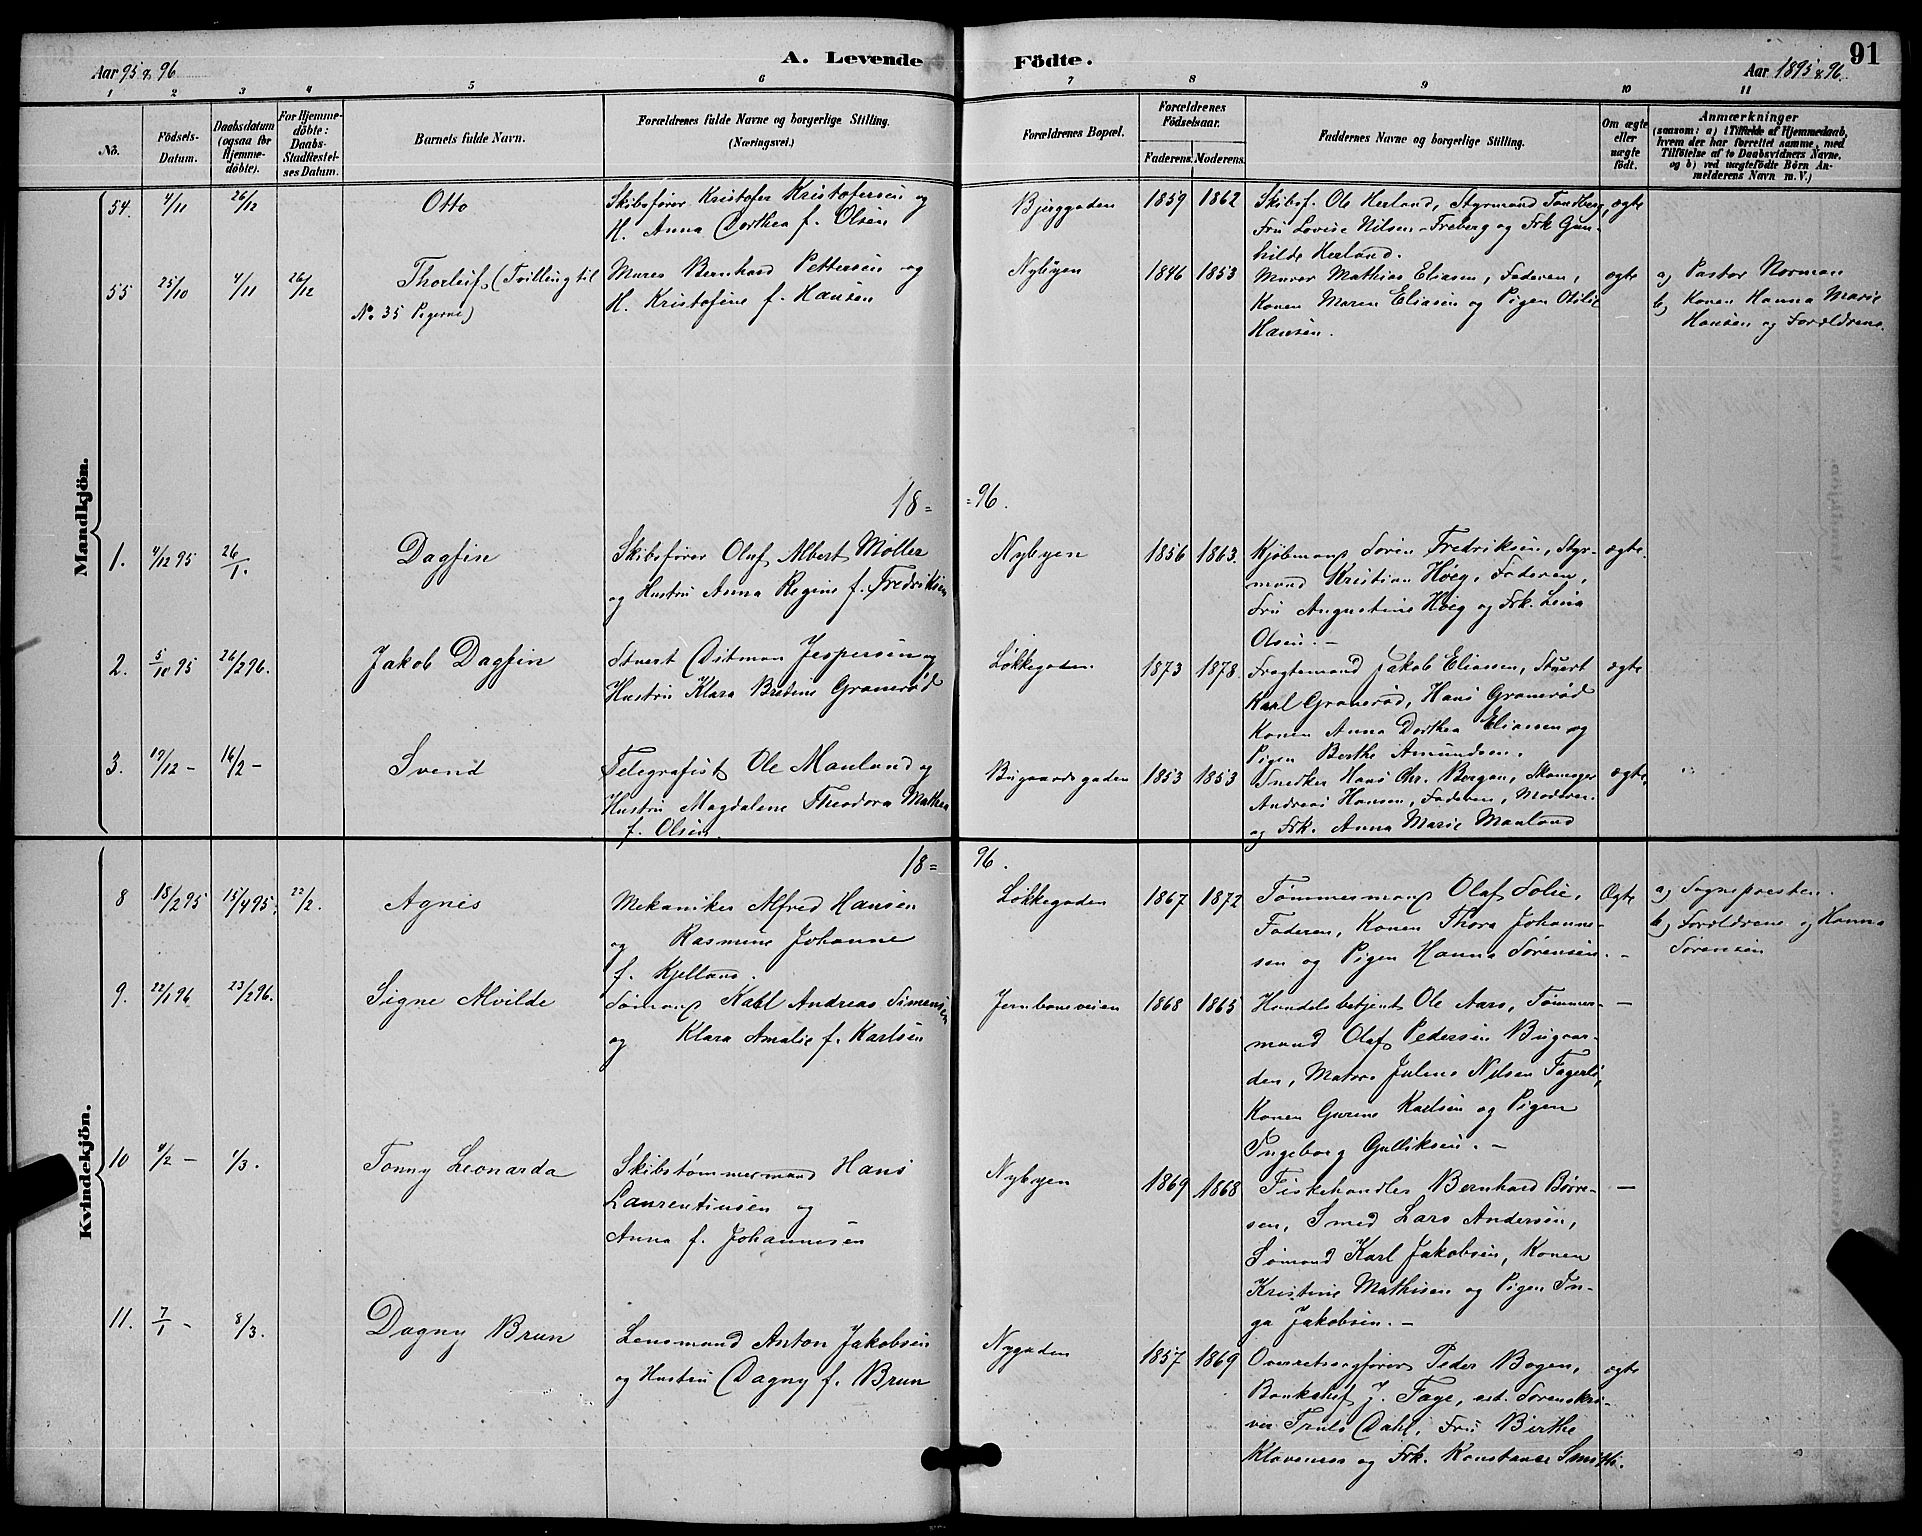 Aar 95 & 96
A. Levende
Födte.
91
Aar 1895 & 96.
1 2 3 4 5 6 7 8 9 10 11
No.
Födsels-
Datum.
Daabsdatum
(ogsaa for
Hjemme-
döbte).
For Hjemme-
döbte:
Daabs-
Stadfæstel-
ses Datum.
Barnets fulde Navn.
Forældrenes fulde Navne og borgerlige Stilling.
(Næringsvei.)
Forældrenes Bopæl.
Forældrenes
Födselsaar.
Faderens. Moderens.
Faddernes Navne og borgerlige Stilling.
Om ægte
eller
uægte
födt.
Anmærkninger
(saasom: a) i Tilfælde af Hjemmedaab,
hvem der har forrettet samme, med
Tilföielse af to Daabsvidners Navne.
og b) ved uægtefödte Börn An-
melderens Navn m. V.)
Mandkjön.
54. 4/11 26/12 Otto
Skibsfører Kristofer Kristofersen og
H. Anna Dorthea f. Olsen
Bjerggaden 1859 1862
Skibsf. Ole Herland, Styrmand Tandberg,
Fru Lovise Nilsen-Freberg og Frk Gun-
hilde Herland.
ægte
55 25/10 4/11 26/12 Thorleif (Tvilling til
No. 35 Pigerne)
Murer Bernhard Pettersen og
H. Kristofine f. Hansen
Nybyen 1846 1853
Murer Mathias Eliasen, Faderen,
Konen Maren Eliasen og Pigen Otilie
Hansen.
ægte
a) Pastor Norman
b) Konen Hanna Marie
Hansen og Forældrene.
18=
=96.
1. 4/12 95 26/1. Dagfin
Skibsfører Oluf Albert Møller
og Hustru Anna Regine f. Fredriksen
Nybyen 1856 1863.
Kjøbmand Søren Fredriksen, Styr-
mand Kristian Høeg, Faderen,
Fru Augustine Høeg og Frk. Lena
Olsen. -
ægte
2. 5/10 95 26/2 96. Jakob Dagfin
Stuert Ditman Jespersen og
Hustru Klara Bredine Granerød
Løkkegaden 1873 1878.
Fragtemand Jakob Eliassen, Stuert
Karl Granerød, Hans Granerød
Konen Anna Dorthea Eliassen og
Pigen Berthe Amundsen.
ægte
3. 19/12 - 16/2 - Svend
Telegrafist Ole Manland og
Hustru Magdalene Theodora Mathea
f. Olsen.
Bugaardsgaden 1853 1853
Snedker Hans Chr. Bergan, Skomager
Andreas Hansen, Faderen, Moderen
og Frk. Anna Marie Manland
ægte
Kvindekjön.
18=
96.
8 18/2 95 15/4 95. 22/2. Agnes
Mekaniker Alfred Hansen
og Rasmine Johanne
f. Kjelland.
Løkkegaden 1867 1872
Tømmermand Olaf Solie,
Faderen, Konen Thora Johanne-
sen og Pigen Hanna Sørensen. -
Ægte
a) Sognepresten.
b) Forældrene og Hanna
Sørensen
9. 22/1 96. 23/2 96. Signe Alvilde
Sømand Karl Andreas Simensen
og Klara Amalie f. Karlsen
Jernbaneveien 1868 1865
Handelsbetjent Ole Aars, Tømmer-
mand Olaf Pedersen Bugaar-
den, Matros Julius Nilsen Fagerli,
Konen Gurine Karlsen og Pigen
Ingeborg Gulliksen. -
-
10 4/2 - 1/3. Tonny Leonarda
Skibstømmermand Hans
Laurentiusen og
Anna f. Johannesen
Nybyen 1869 1868
Fiskehandler Bernhard Børre-
sen, Smed Lars Andersen,
Sømand Karl Jakobsen, Konen
Kristine Mathisen og Pigen In-
ga Jakobsen. -
-
11. 7/1 - 8/3. Dagny Brun
Lensmand Anton Jakobsen
og Hustru Dagny f. Brun
Nygaden 1857 1869
Overretssagfører Peder Bogen,
Bankchef J. Faye, est. Sorenskri-
ver Truls Dahl, Fru Birthe
Klaveness og Frk. Konstance Smith.
ægte